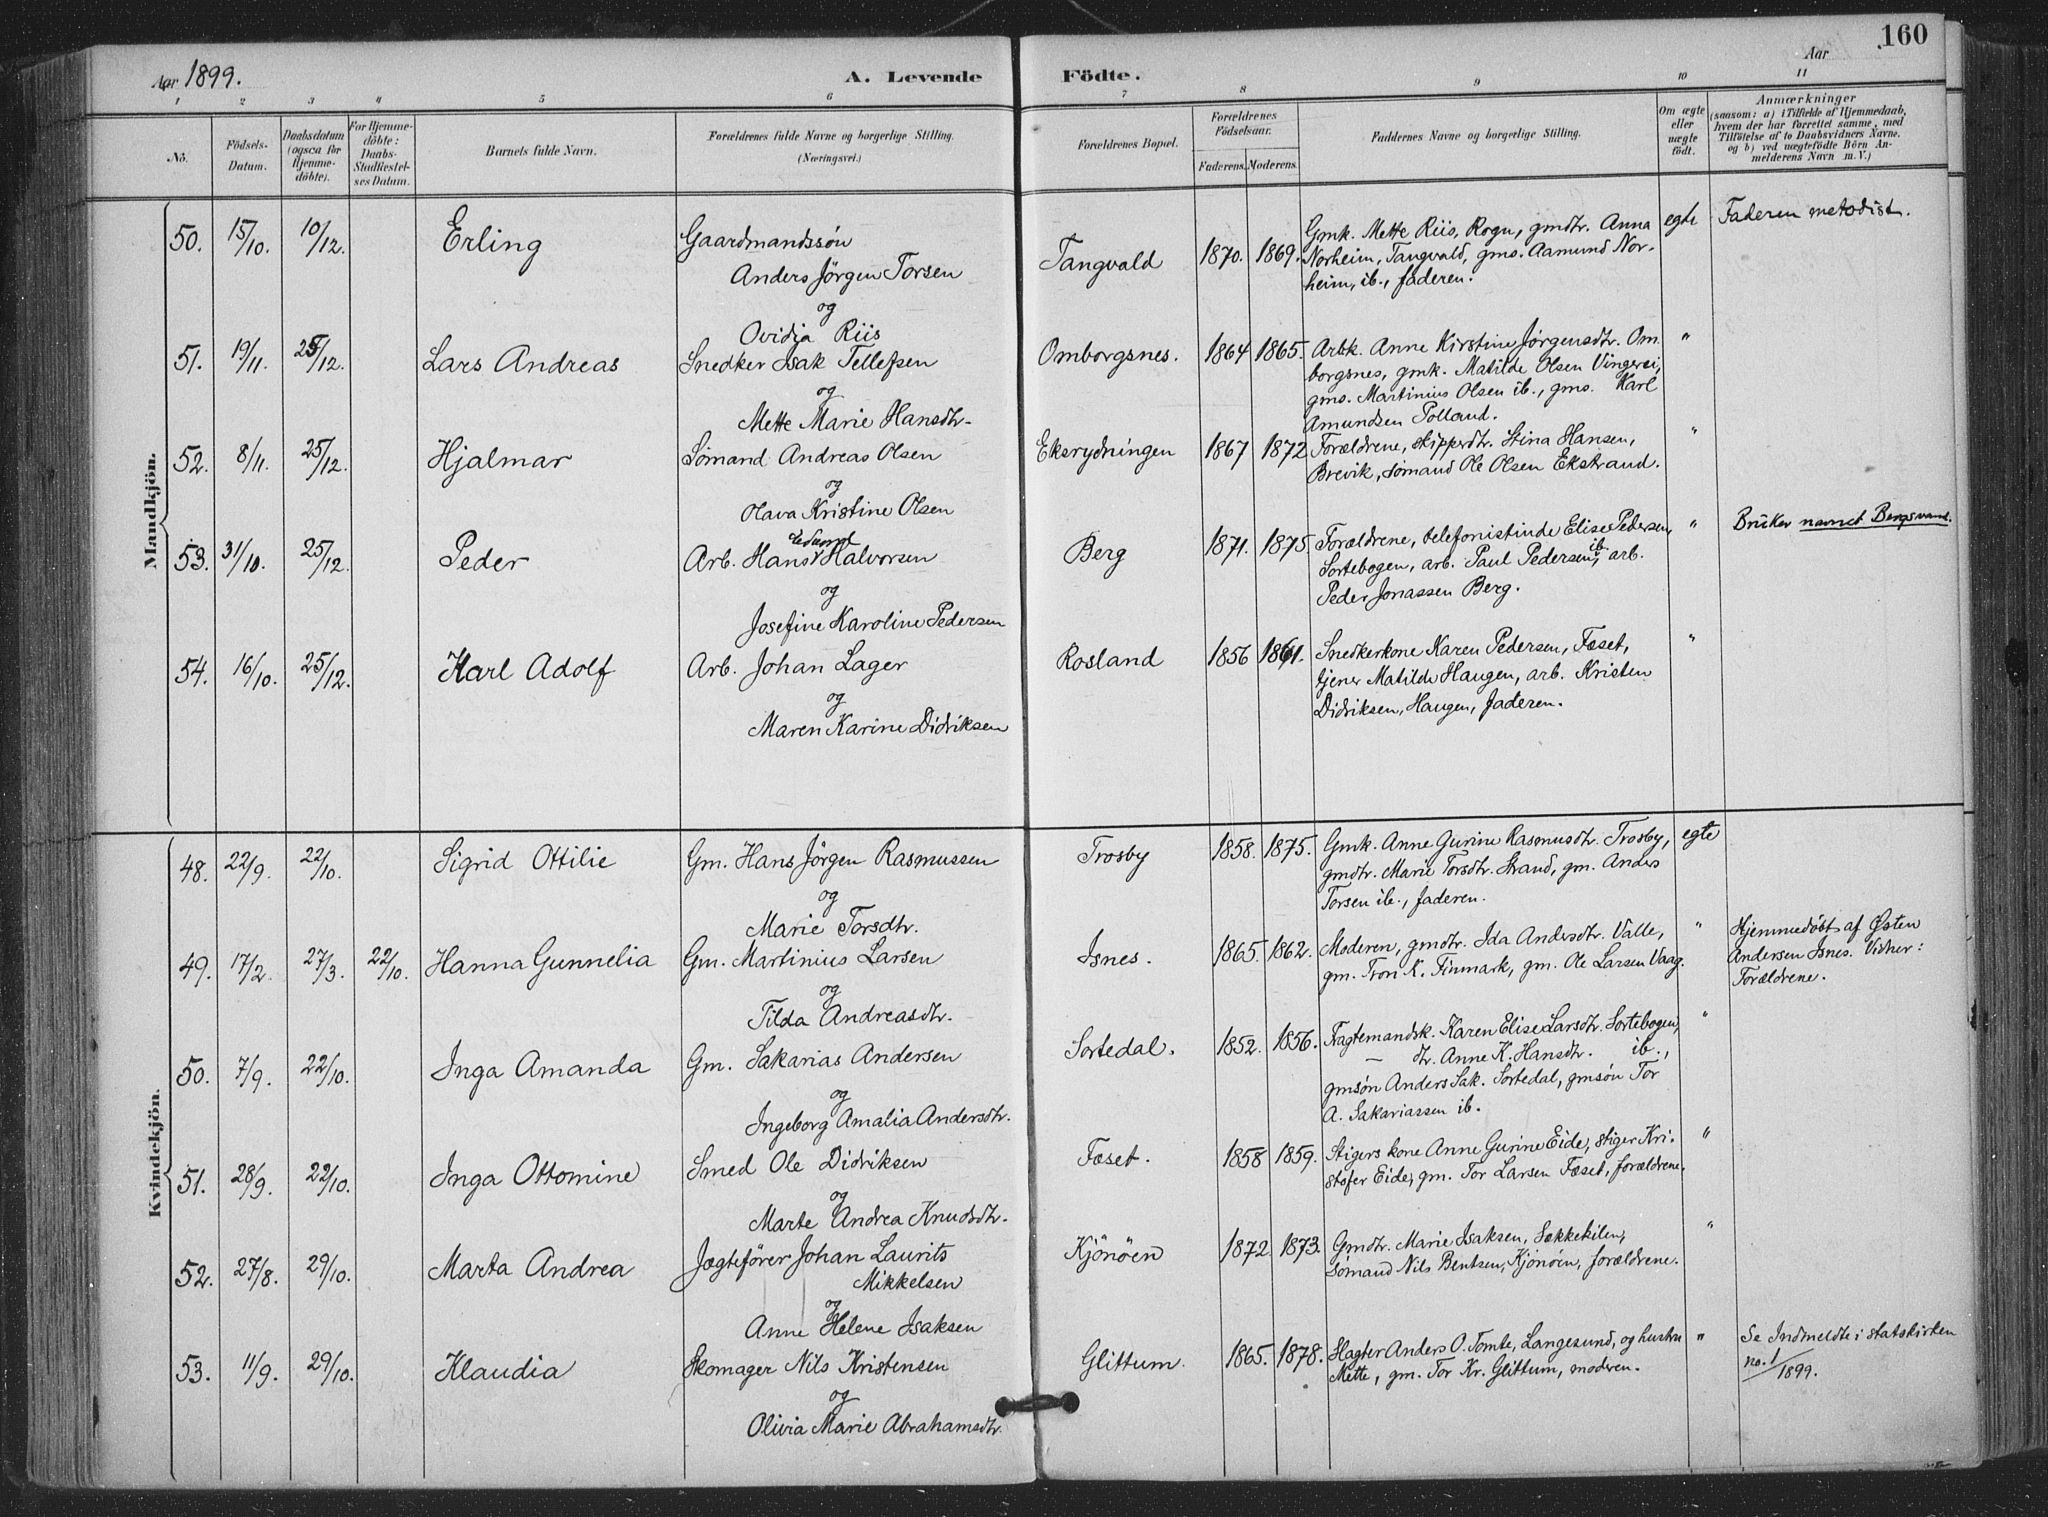 Aar 1899.
A. Levende Födte.
Aar
160
1 2 3 4 5 6 7 8 9 10 11
No.
Födsels-
Datum.
Daabsdatum
(ogsaa for
Hjemme-
döbte).
For Hjemme-
döbte:
Daabs-
Stadfæstel-
ses Datum.
Barnets fulde Navn.
Forældrenes fulde Navne og borgerlige Stilling.
(Næringsvei.)
Forældrenes Bopæl.
Forældrenes
Födselsaar.
Faderens. Moderens.
Faddernes Navne og borgerlige Stilling.
Om ægte
eller
uægte
födt.
Anmærkninger
(saasom: a) i Tilfælde af Hjemmedaab,
hvem der har forrettet samme, med
Tilföielse af to Daabsvidners Navne,
og b) ved uægtefödte Börn An-
melderens Navn m.V.)
Mandkjön.
50. 15/10. 10/12. Erling
Gaardmandssön
Anders Jörgen Torsen
og
Ovidja Riis
Tangvald 1870. 1869.
Gmk. Mette Riis, Rogn, gmdtr. Anna
Norheim, Tangvald, gms. Aamund Nor-
heim, ib., faderen.
egte
Faderen metodist.
51. 19/11. 25/12. Lars Andreas
Snedker Isak Tellefsen
og
Mette Marie Hansdtr.
Omborgsnes. 1864 1865.
Arbk. Anne Kirstine Jørgensdtr. Om-
borgsnes, gmk. Matilde Olsen Vingerei,
gms. Martinius Olsen ib., gms. Karl
Amundsen Polland.
"
52. 8/11. 25/12. Hjalmar
Sömand Andreas Olsen
og
Olava Kristine Olsen
Eksrydningen 1867 1872
Forældrene, skipperdtr. Stina Hansen,
Brevik, sömand Ole Olsen Ekstrand.
"
53. 31/10. 25/12. Peder
Edvard
Arb. Hans Halvorsen
og
Josefine Karoline Pedersen
Berg 1871. 1875.
Forældrene, telefonistinde Elise Pedersen,
Sortebogen, arb. Paul Pedersen ib., arb.
Peder Jonassen Berg.
"
Brüker navnet Bergsvand.
54. 16/10. 25/12. Karl Adolf
Arb. Johan Lager
og
Maren Karine Didriksen
Rosland 1856 1861.
Snedkerkone Karen Pedersen, Fæset,
tjener Matilde Haugen, arb. Kristen
Didriksen, Haugen, faderen.
"
Kvindekjön.
48. 22/9. 22/10. Sigrid Ottilie
Gm. Hans Jörgen Rasmussen
og
Marie Torsdtr.
Trosby 1858. 1875.
Gmk. Anne Gurine Rasmusdtr. Trosby,
gmdtr. Marie Torsdtr. Strand, gm. Anders
Torsen ib., faderen.
egte
49. 17/2. 27/3. 22/10. Hanna Gunnelia
Gm. Martinius Larsen
og
Tilda Andreasdtr.
Isnes. 1865. 1862.
Moderen, gmdtr. Ida Andersdtr. Valle,
gm. Tron K. Finmark, gm. Ole Larsen Vaag.
"
Hjemmedöbt af Østen
Andersen Isnes. Vidner:
Forældrene.
50. 7/9. 22/10. Inga Amanda
Gm. Sakarias Andersen
og
Ingeborg Amalia Andersdtr.
Sortedal. 1852. 1856.
Fragtemandsk. Karen Elise Larsdtr. Sortebogen,
— dtr. Anne K. Hansdtr. ib.,
gmsön Anders Sak. Sortedal, gmsön Tor
A. Sakariassen ib.
"
51. 28/9. 22/10. Inga Ottomine
Smed Ole Didriksen
og
Marte Andrea Knudsdtr.
Fæset. 1858 1859.
Stigers kone Anne Gurine Eide, stiger Kri-
stofer Eide, gm. Tor Larsen Fæset, forældrene.
"
52. 27/8. 29/10. Marta Andrea
Jægtefører Johan Laurits
Mikkelsen
og
Anne Helene Isaksen
Kjönöen 1872. 1873.
Gmdtr. Marie Isaksen, Søkkekilen,
Sömand Nils Bentsen, Kjönöen, forældrene.
"
53. 11/9. 29/10. Klaudia
Skomager Nils Kristensen
og
Olivia Marie Abrahamsdtr.
Glittum. 1865. 1878.
Hagter Anders O. Tomte, Langesund, og hustru
Mette, gm. Tor Kr. Glittum, modren.
"
Se Indmeldte i statskirken
no. 1/1899.